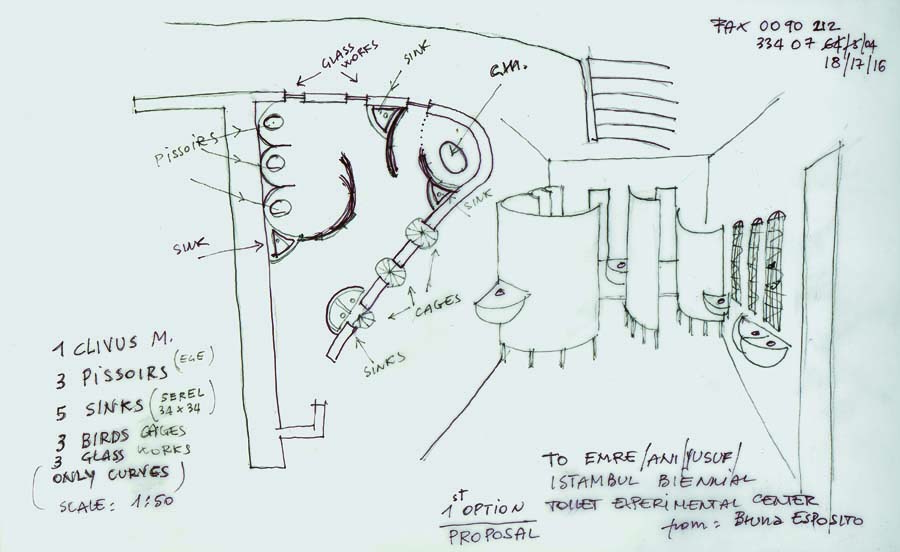 FAX 0090 212
334 07 64/5/04
18/17/16
GLASS
WORKS
SINK
C.M.
PISSOIRS
SINK
SINK
CAGES
SINKS
1 CLIVUS M.
3 PISSOIRS (EGE)
5 SINKS (SEREL
34 x 34)
3 BIRDS CAGES
3 GLASS WORKS
(ONLY CURVES)
SCALE: 1:50
1st OPTION
PROPOSAL
TO EMRE/ANI/YUSUF/
ISTAMBUL BIENNIAL
TOILET EXPERIMENTAL CENTER
from: Bruna ESPOSITO